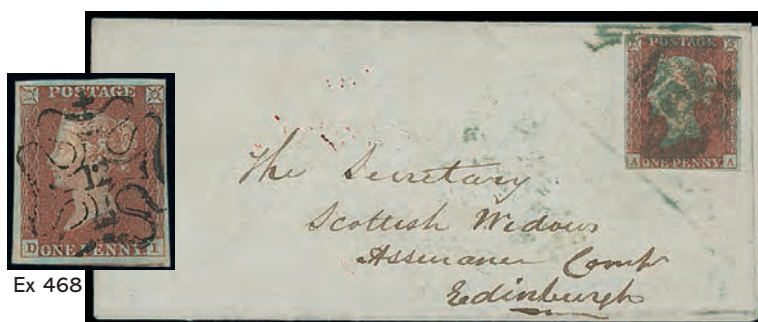 POSTAGE
12
D ONE PENNY I
Ex 468
POSTAGE
A ONE PENNY A
The Secretary
Scottish Widows
Assurance Comp
Edinburgh